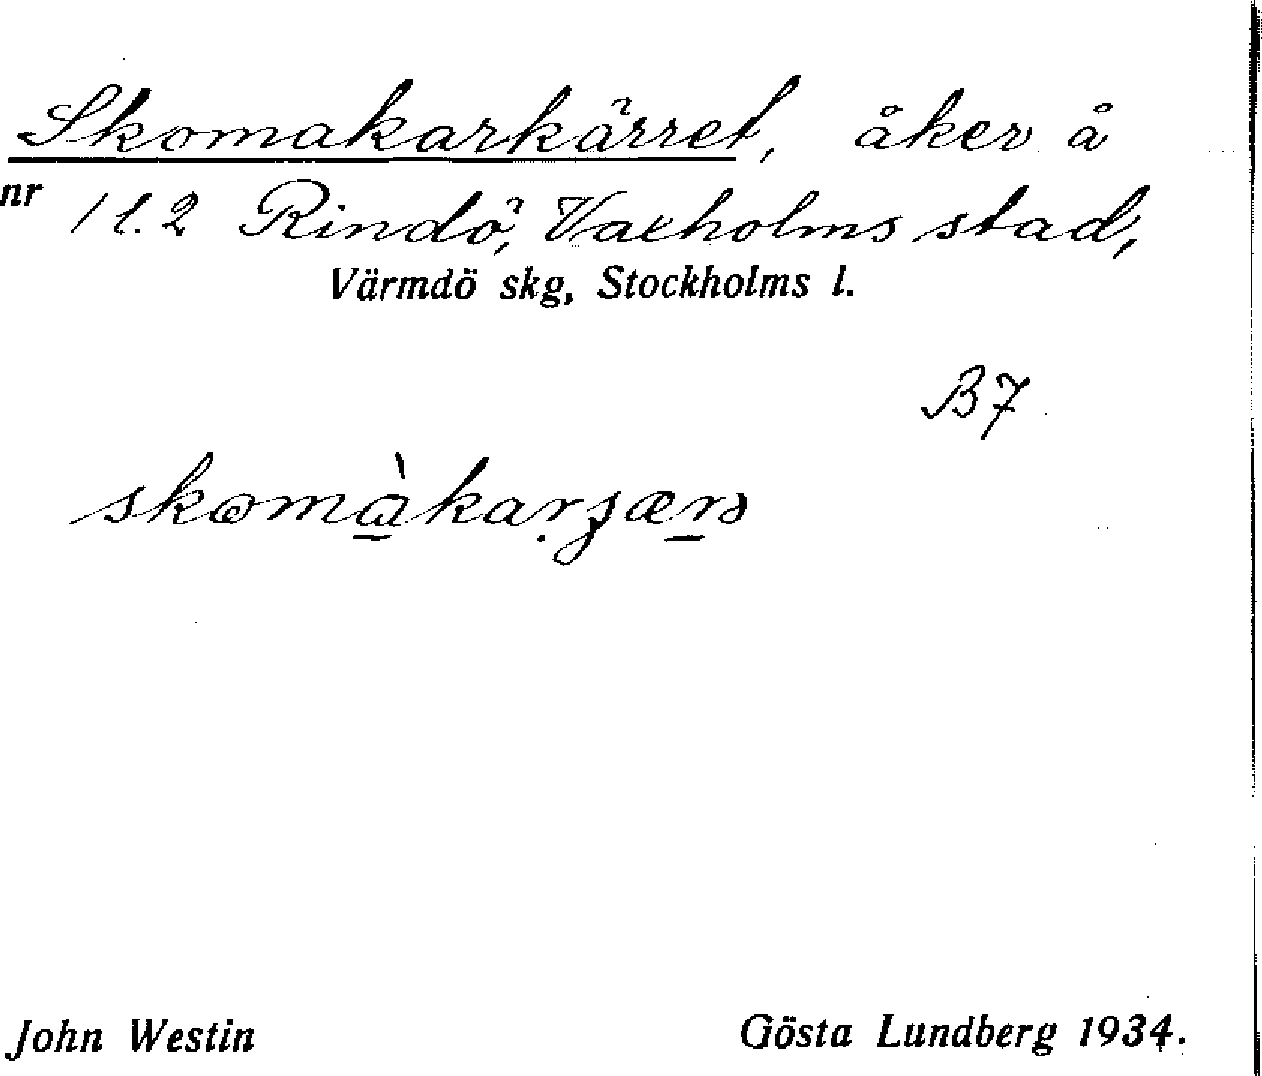 Skomakarkärret, åker å
nr 1 l. 2 Rindö, Vaxholms stad,
Värmdö skg, Stockholms l.
B7
John Westin
Gösta Lundberg 1934.